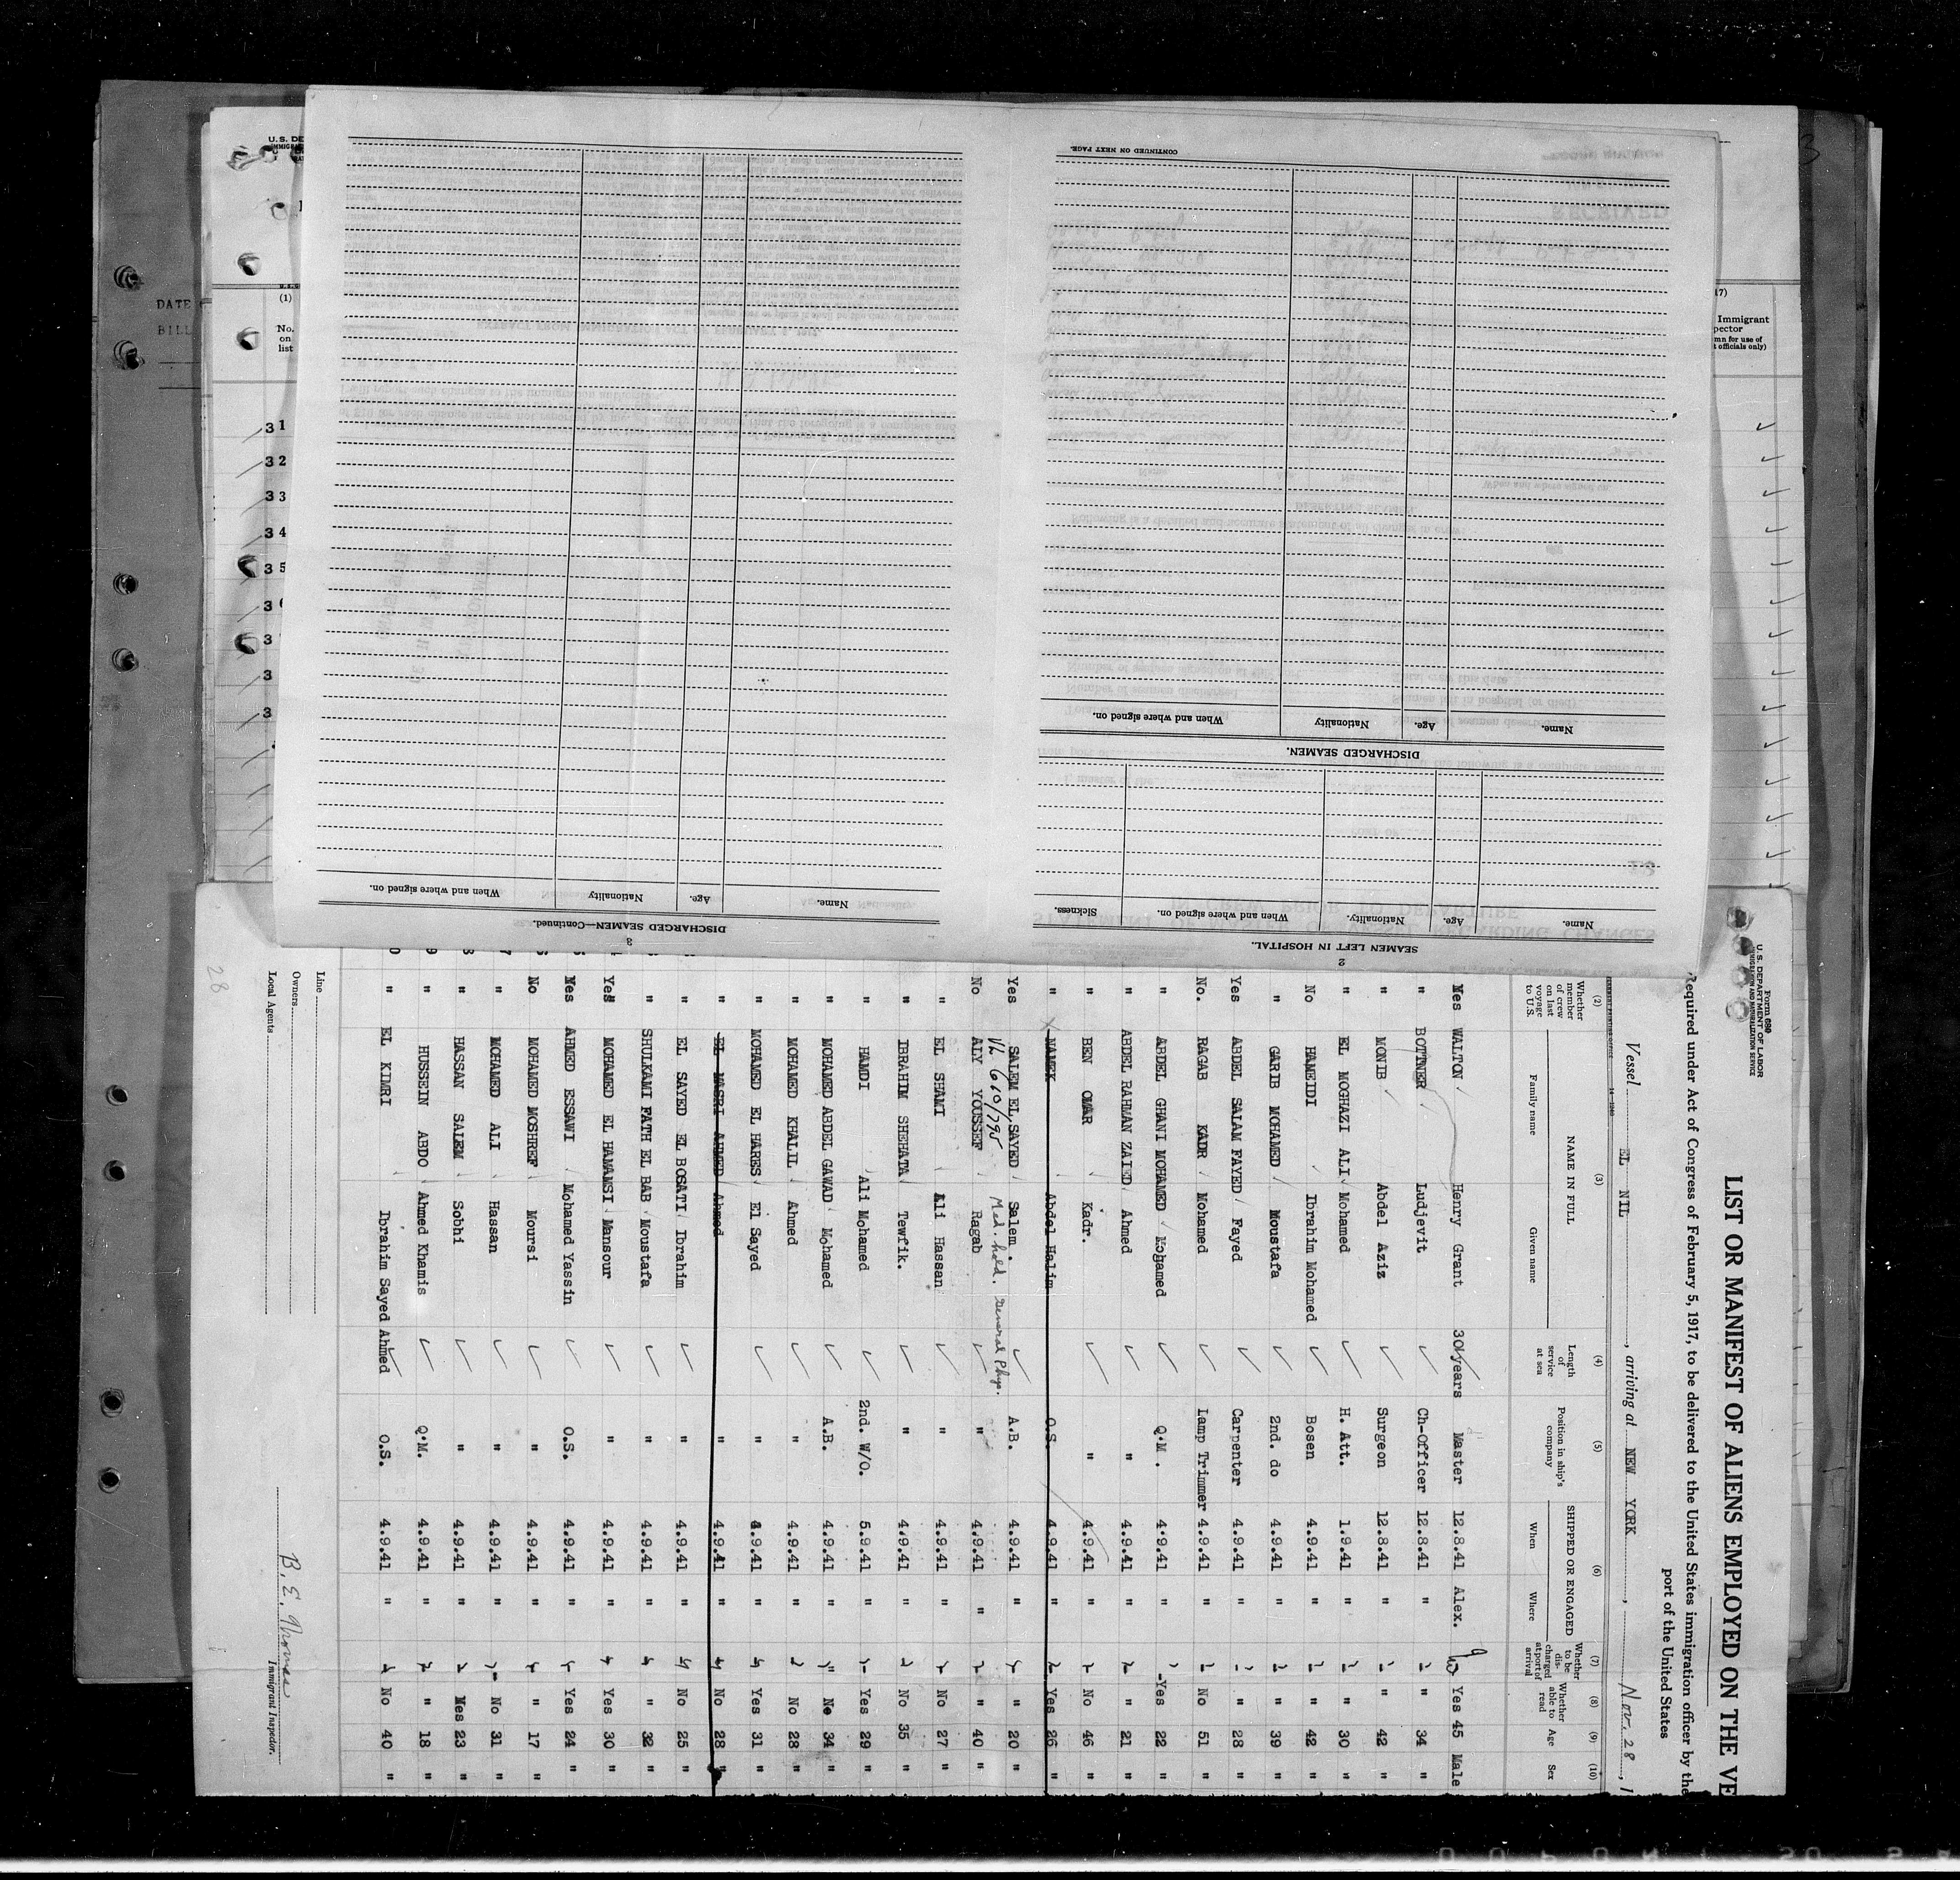 Form 680
U. S. DEPARTMENT OF LABOR
IMMIGRATION AND NATURALIZATION SERVICE
LIST OR MANIFEST OF ALIENS EMPLOYED ON THE VE
Required under Act of Congress of February 5, 1917, to be delivered to the United States immigration officer by the
port of the United States
Vessel EL NIL, arriving at NEW YORK, Nov. 28, 1
(2) (3) (4) (5) (6) (7) (8) (9) (10)
Whether member of crew on last voyage to U.S. NAME IN FULL Family name Given name Length of service at sea Position in ship's company SHIPPED OR ENGAGED When Where Whether to be discharged at port of arrival Whether able to read Age Sex
Mes WALTON Henry Grant 30 years Master 12.8.41 Alex. Yes 45 Male
" BOTTNER Ludjevit Ch-Officer 12.8.41 " " 34 "
" MONIB Abdel Aziz Surgeon 12.8.41 " " 42 "
" EL MOGHAZI ALI Mohamed H. Att. 1.9.41 " " 30 "
No HAMEIDI Ibrahim Mohamed Bosen 4.9.41 " " 42 "
" GARIB MOHAMED Moustafa 2nd. do 4.9.41 " " 39 "
Yes ABDEL SALAM FAYED Fayed Carpenter 4.9.41 " " 28 "
No. RAGAB KADR Mohamed Lamp Trimmer 4.9.41 " No 51 "
" ABDEL GHANI MOHAMED Mogamed Q.M. 4.9.41 " Yes 22 "
" ABDEL RAHMAN ZAIED Ahmed " 4.9.41 " " 21 "
" BEN OMAR Kadr. " 4.9.41 " No 46 "
" NAMEK Abdel Halim O.S. 4.9.41 " Yes 26 "
Yes SALEM EL SAYED Salem. A.B. 4.9.41 " " 20 "
VL 610/795 Med. held. General Phys.
No ALY YOUSSEF Ragab " 4.9.41 " " 40 "
" EL SHAMI Ali Hassan " 4.9.41 " No 27 "
" IBRAHIM SHEHATA Tewfik. " 4.9.41 " No 35 "
" HAMDI Ali Mohamed 2nd. W/O. 5.9.41 " Yes 29 "
" MOHAMED ABDEL GAWAD Mohamed A.B. 4.9.41 " No 34 "
" MOHAMED KHALIL Ahmed " 4.9.41 " No 28 "
" MOHAMED EL HARES El Sayed " 4.9.41 " Yes 31 "
" EL MASRI AHMED Ahmed " 4.9.41 " No 28 "
" EL SAYED EL BOSATI Ibrahim " 4.9.41 " No 25 "
" SHULKAMI FATH EL BAB Moustafa " 4.9.41 " " 32 "
Yes MOHAMED EL HAMAMSI Mansour " 4.9.41 " Yes 30 "
Mes AHMED ESSAWI Mohamed Yassin O.S. 4.9.41 " Yes 24 "
No MOHAMED MOSHREF Moursi " 4.9.41 " " 17 "
" MOHAMED ALI Hassan " 4.9.41 " No 31 "
" HASSAN SALEM Sobhi " 4.9.41 " Mes 23 "
" HUSSEIN ABDO Ahmed Khamis Q.M. 4.9.41 " " 18 "
" EL KIMRI Ibrahim Sayed Ahmed O.S. 4.9.41 " No 40 "
Line
Owners
Local Agents
B. E. Thomas
Immigrant Inspector.
28
2
SEAMEN LEFT IN HOSPITAL.
Name. Age. Nationality. When and where signed on. Sickness.
DISCHARGED SEAMEN.
Name. Age. Nationality When and where signed on.
CONTINUED ON NEXT PAGE.
3
DISCHARGED SEAMEN—Continued.
Name. Age. Nationality When and where signed on.
U. S. DE
(1)
No. on list
31
32
33
34
35
DATE
BILL
Immigrant
pector
mn for use of
t officials only)